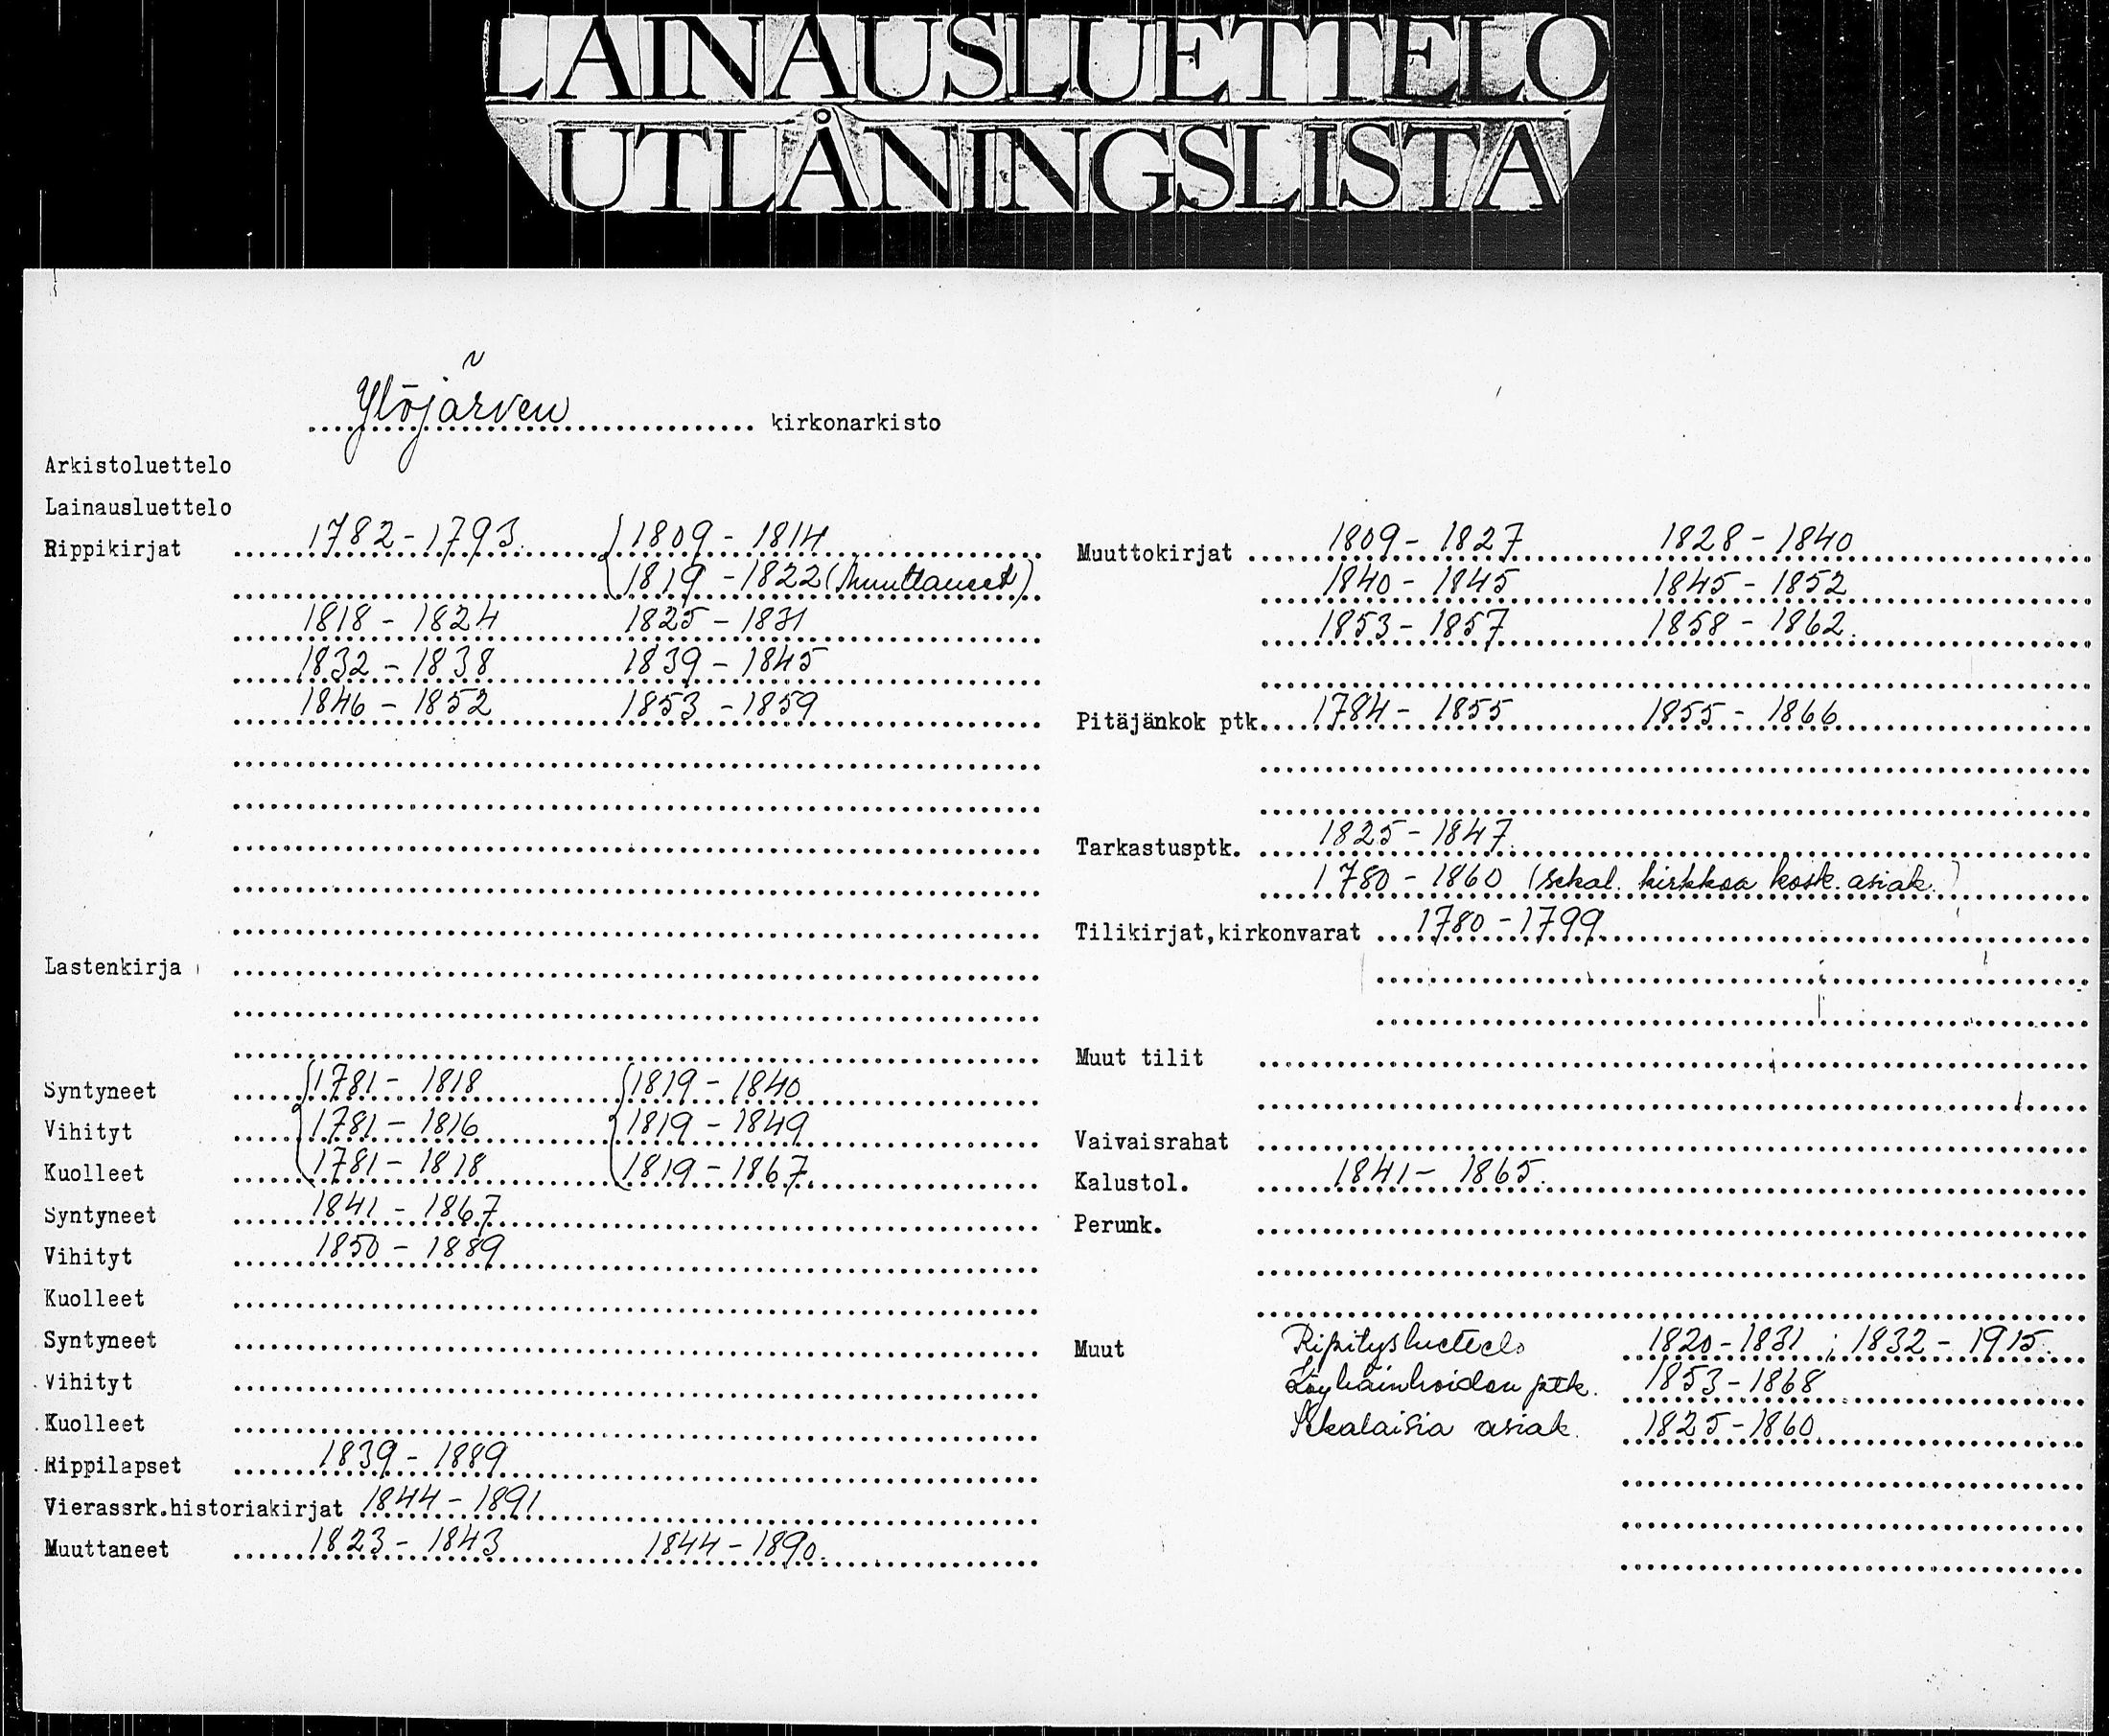 LAINAUSLUETTELO
UTLÅNINGSLISTA
Ylöjärven kirkonarkisto
Arkistoluettelo
Lainausluettelo
Rippikirjat 1782-1793. 1809-1814
1819-1822 (Muuttaneet)
1818-1824 1825-1831
1832-1838 1839-1845
1846-1852 1853-1859
Lastenkirja
Syntyneet 1781-1818 1819-1840
Vihityt 1781-1816 1819-1849
Kuolleet 1781-1818 1819-1867.
Syntyneet 1841-1867
Vihityt 1850-1889
Kuolleet
Syntyneet
Vihityt
Kuolleet
Rippilapset 1839-1889
Vierassrk.historiakirjat 1844-1891
Muuttaneet 1823-1843 1844-1890.
Muuttokirjat 1809-1827 1828-1840
1840-1845 1845-1852
1853-1857 1858-1862.
Pitäjänkok ptk. 1784-1855 1855-1866
Tarkastusptk. 1825-1847.
1780-1860 (sekal. kirkkoa kosk. asiak.)
Tilikirjat,kirkonvarat 1780-1799
Muut tilit
Vaivaisrahat
Kalustol. 1841-1865.
Perunk.
Muut Ripitysluettelo 1820-1831 ; 1832-1915.
Köyhäinhoidon ptk. 1853-1868
Sekalaisia asiak. 1825-1860